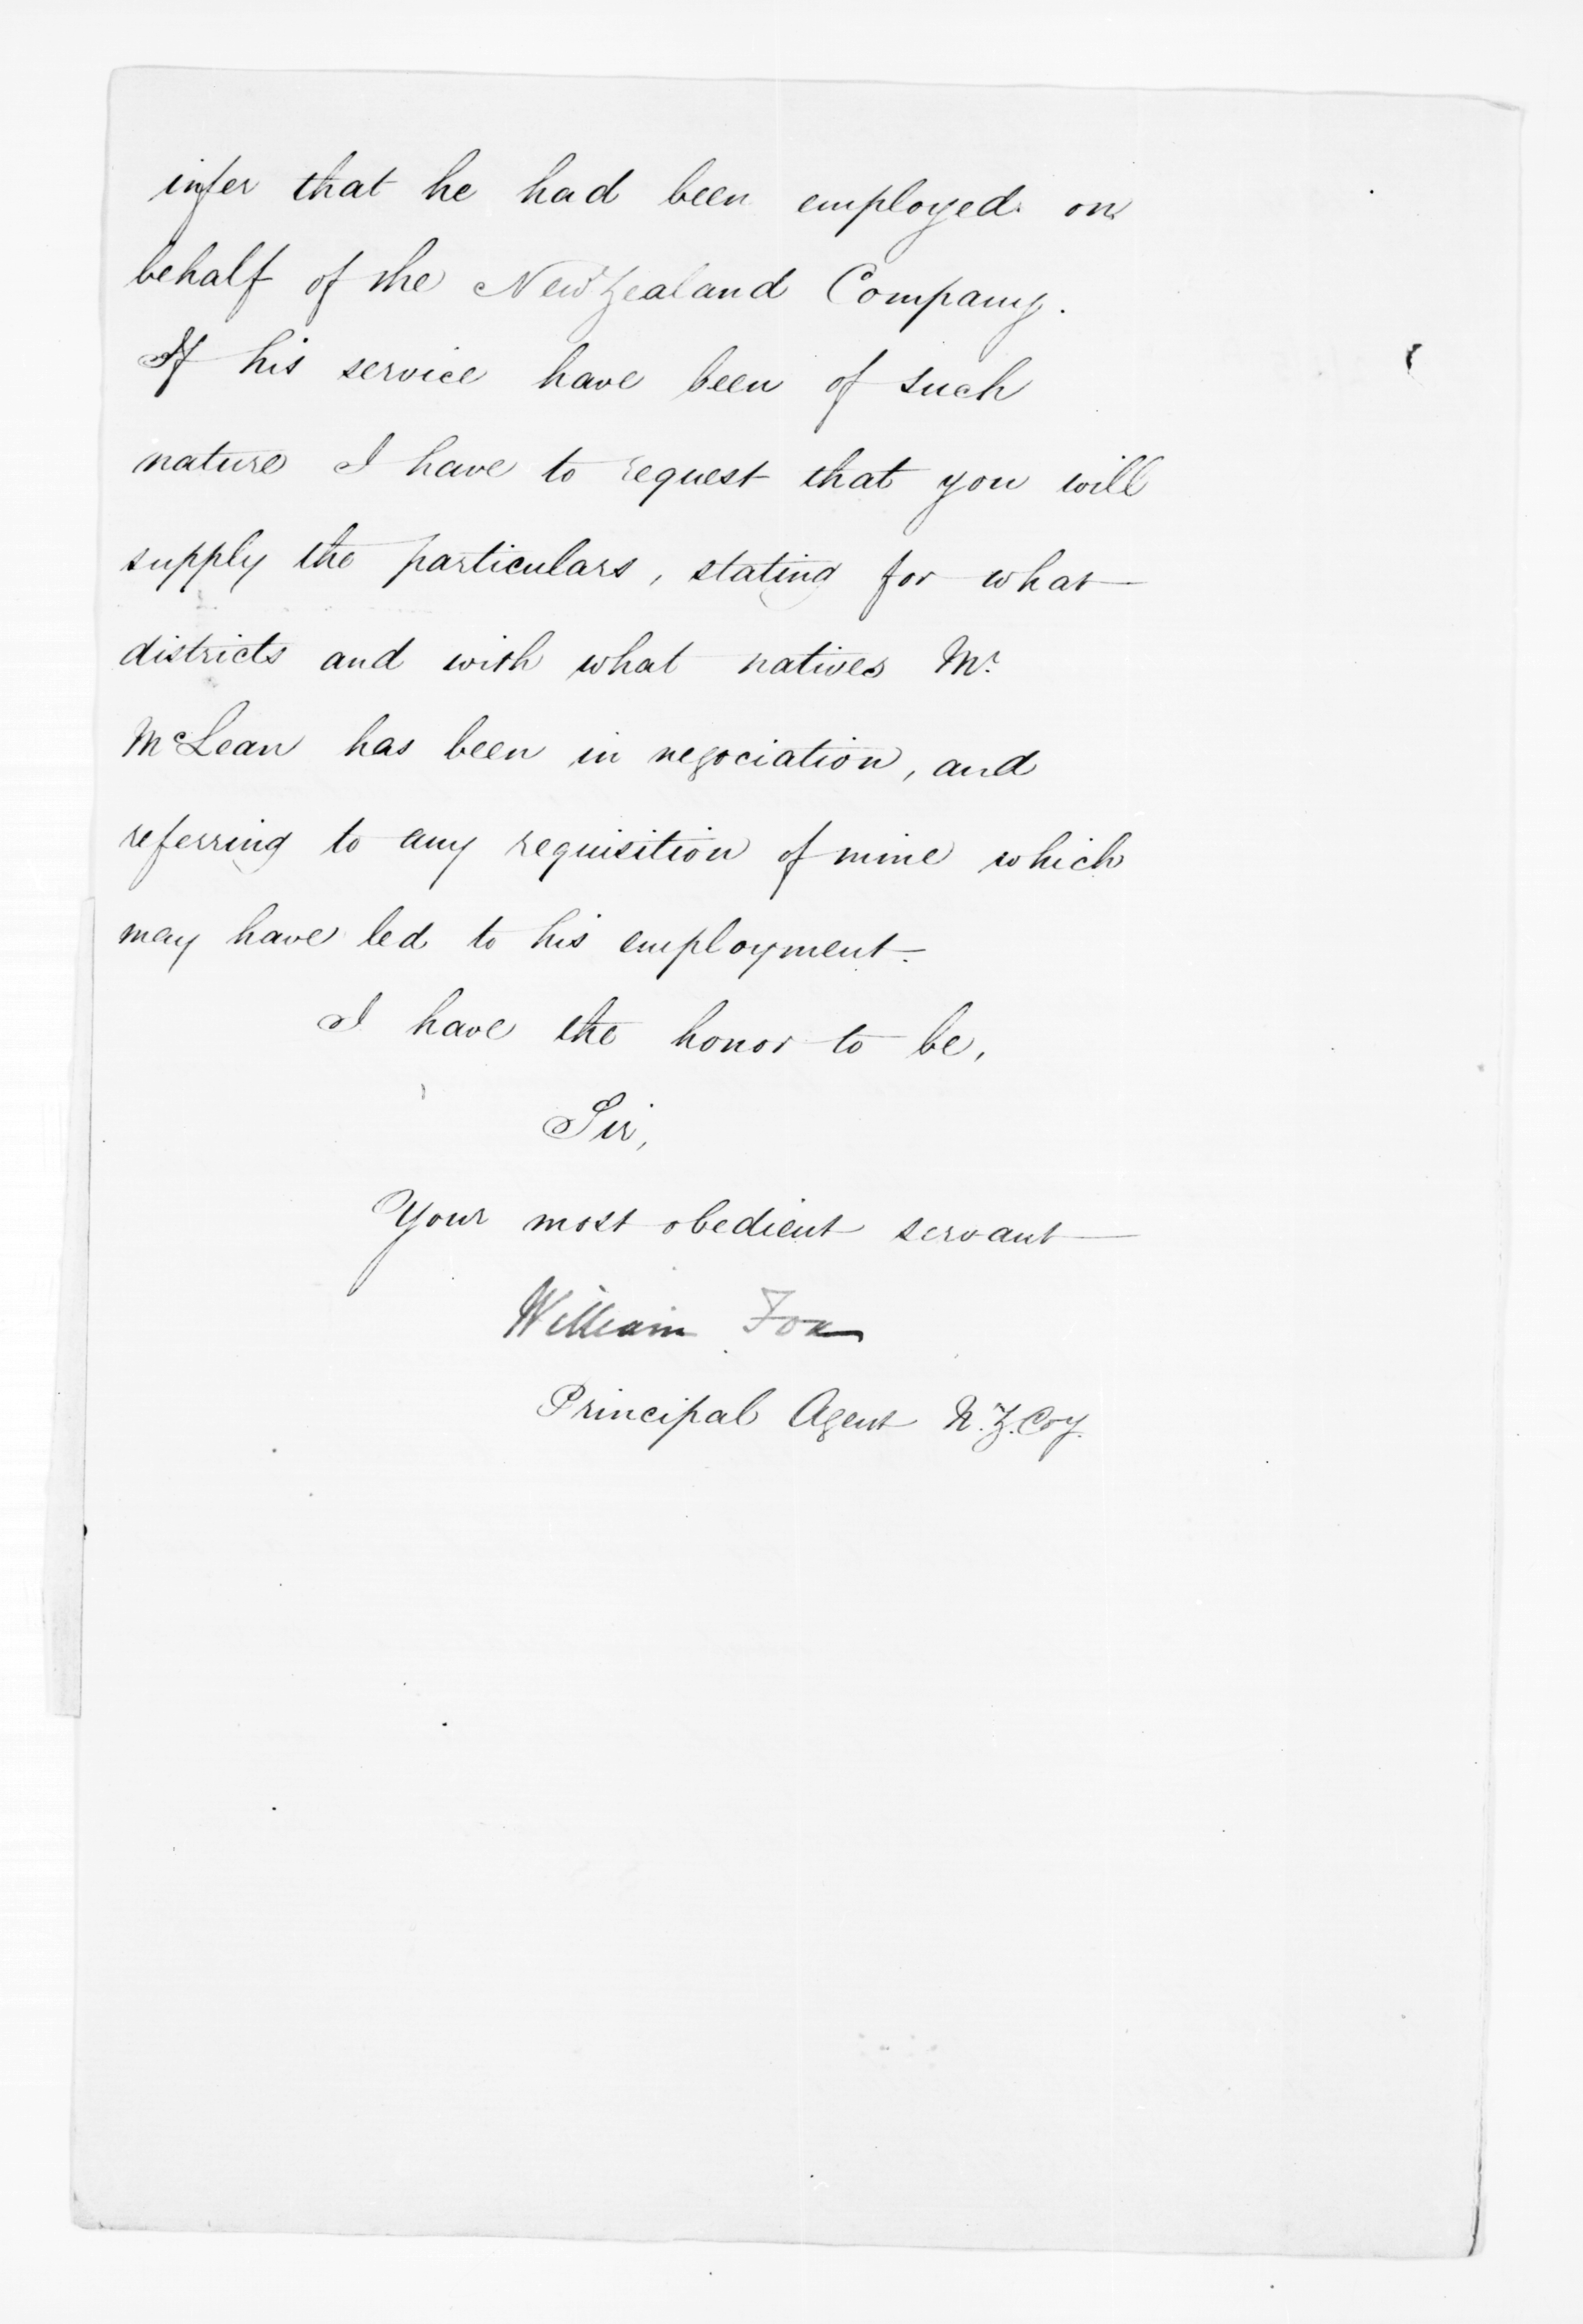 infer that he had been employed on
behalf of the New Zealand Company.
If his service have been of such
nature I have to request that you will
supply the particulars, stating for what
districts and with what natives Mr.
McLean has been in negociation, and
referring to any requisition of mine which
may have led to his employment.
I have the honor to be,
Sir,
Your most obedient servant
William Fox
Principal Agent N.Z. Coy.